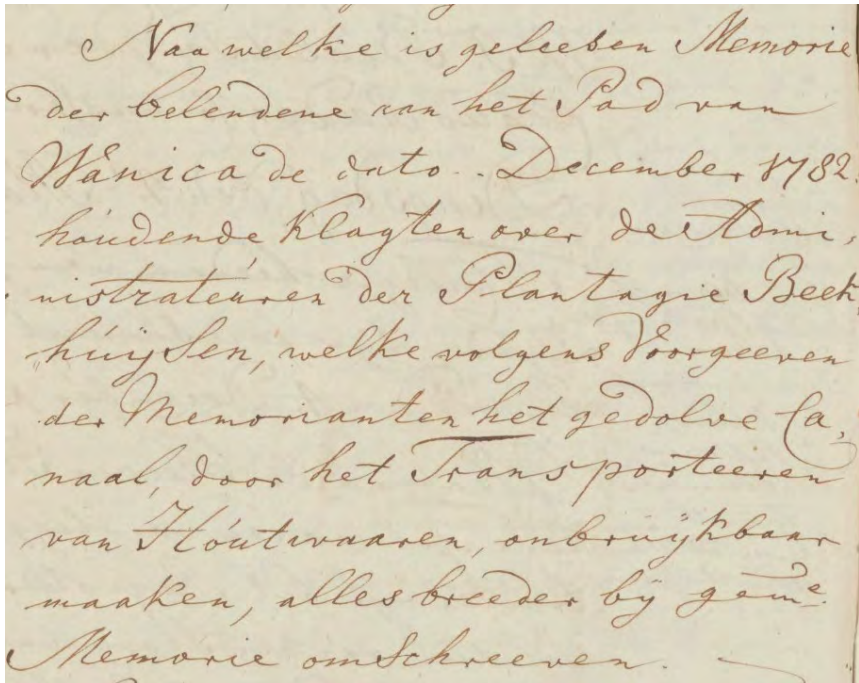 Naa welke is geleesen Memorie
der belendene aan het Pad van
Wanica de dato .. December 1782.
houdende Klagten over de Admi,
nistrateuren der Plantagie Beek,
huijsen, welke volgens Voorgeeven
der Memorianten het gedolve Ca,
naal, door het Transporteeren
van Houtwaaren, onbruijkbaar
maaken, alles breeder bij gem.e
Memorie omschreeven.